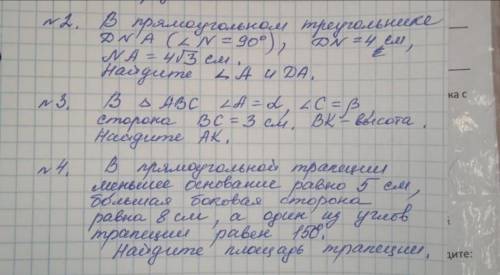 №2. В прямоугольном треугольнике
DNA (∠N = 90°), DN = 4 см,
NA = 4√3 см.
Найдите ∠A и DA.
№3. В △ ABC ∠A = α, ∠C = β
сторона BC = 3 см. BK – высота.
Найдите AK.
№4. В прямоугольной трапеции
меньшее основание равно 5 см,
большая боковая сторона
равна 8 см, а один из углов
трапеции равен 150°.
Найдите площадь трапеции.
ка с
дите: